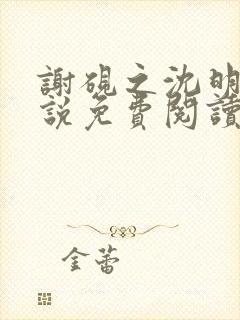 謝硯之沈明
說免費閱讀
金蕾